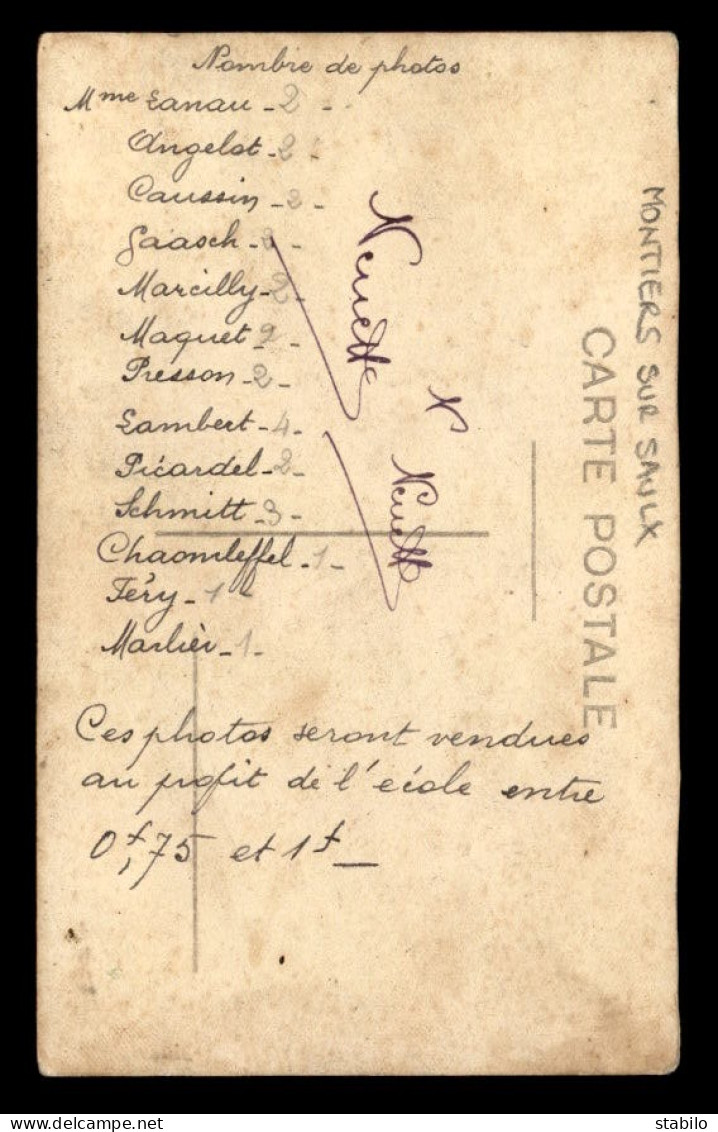 Nombre de photos
Mme Lanau - 2 -
Angelot - 2 -
Caussin - 2 -
Gaasch - 3 -
Marcilly - 2 -
Maquet - 2 -
Presson - 2 -
Lambert - 4 -
Picardel - 2 -
Schmitt - 3 -
Chaomleffel - 1 -
Féry - 1 -
Marlièr - 1 -
Ces photos seront vendues
au profit de l'école entre
0f,75 et 1f —
N
MONTIERS SUR SAULX
CARTE POSTALE
stabilo